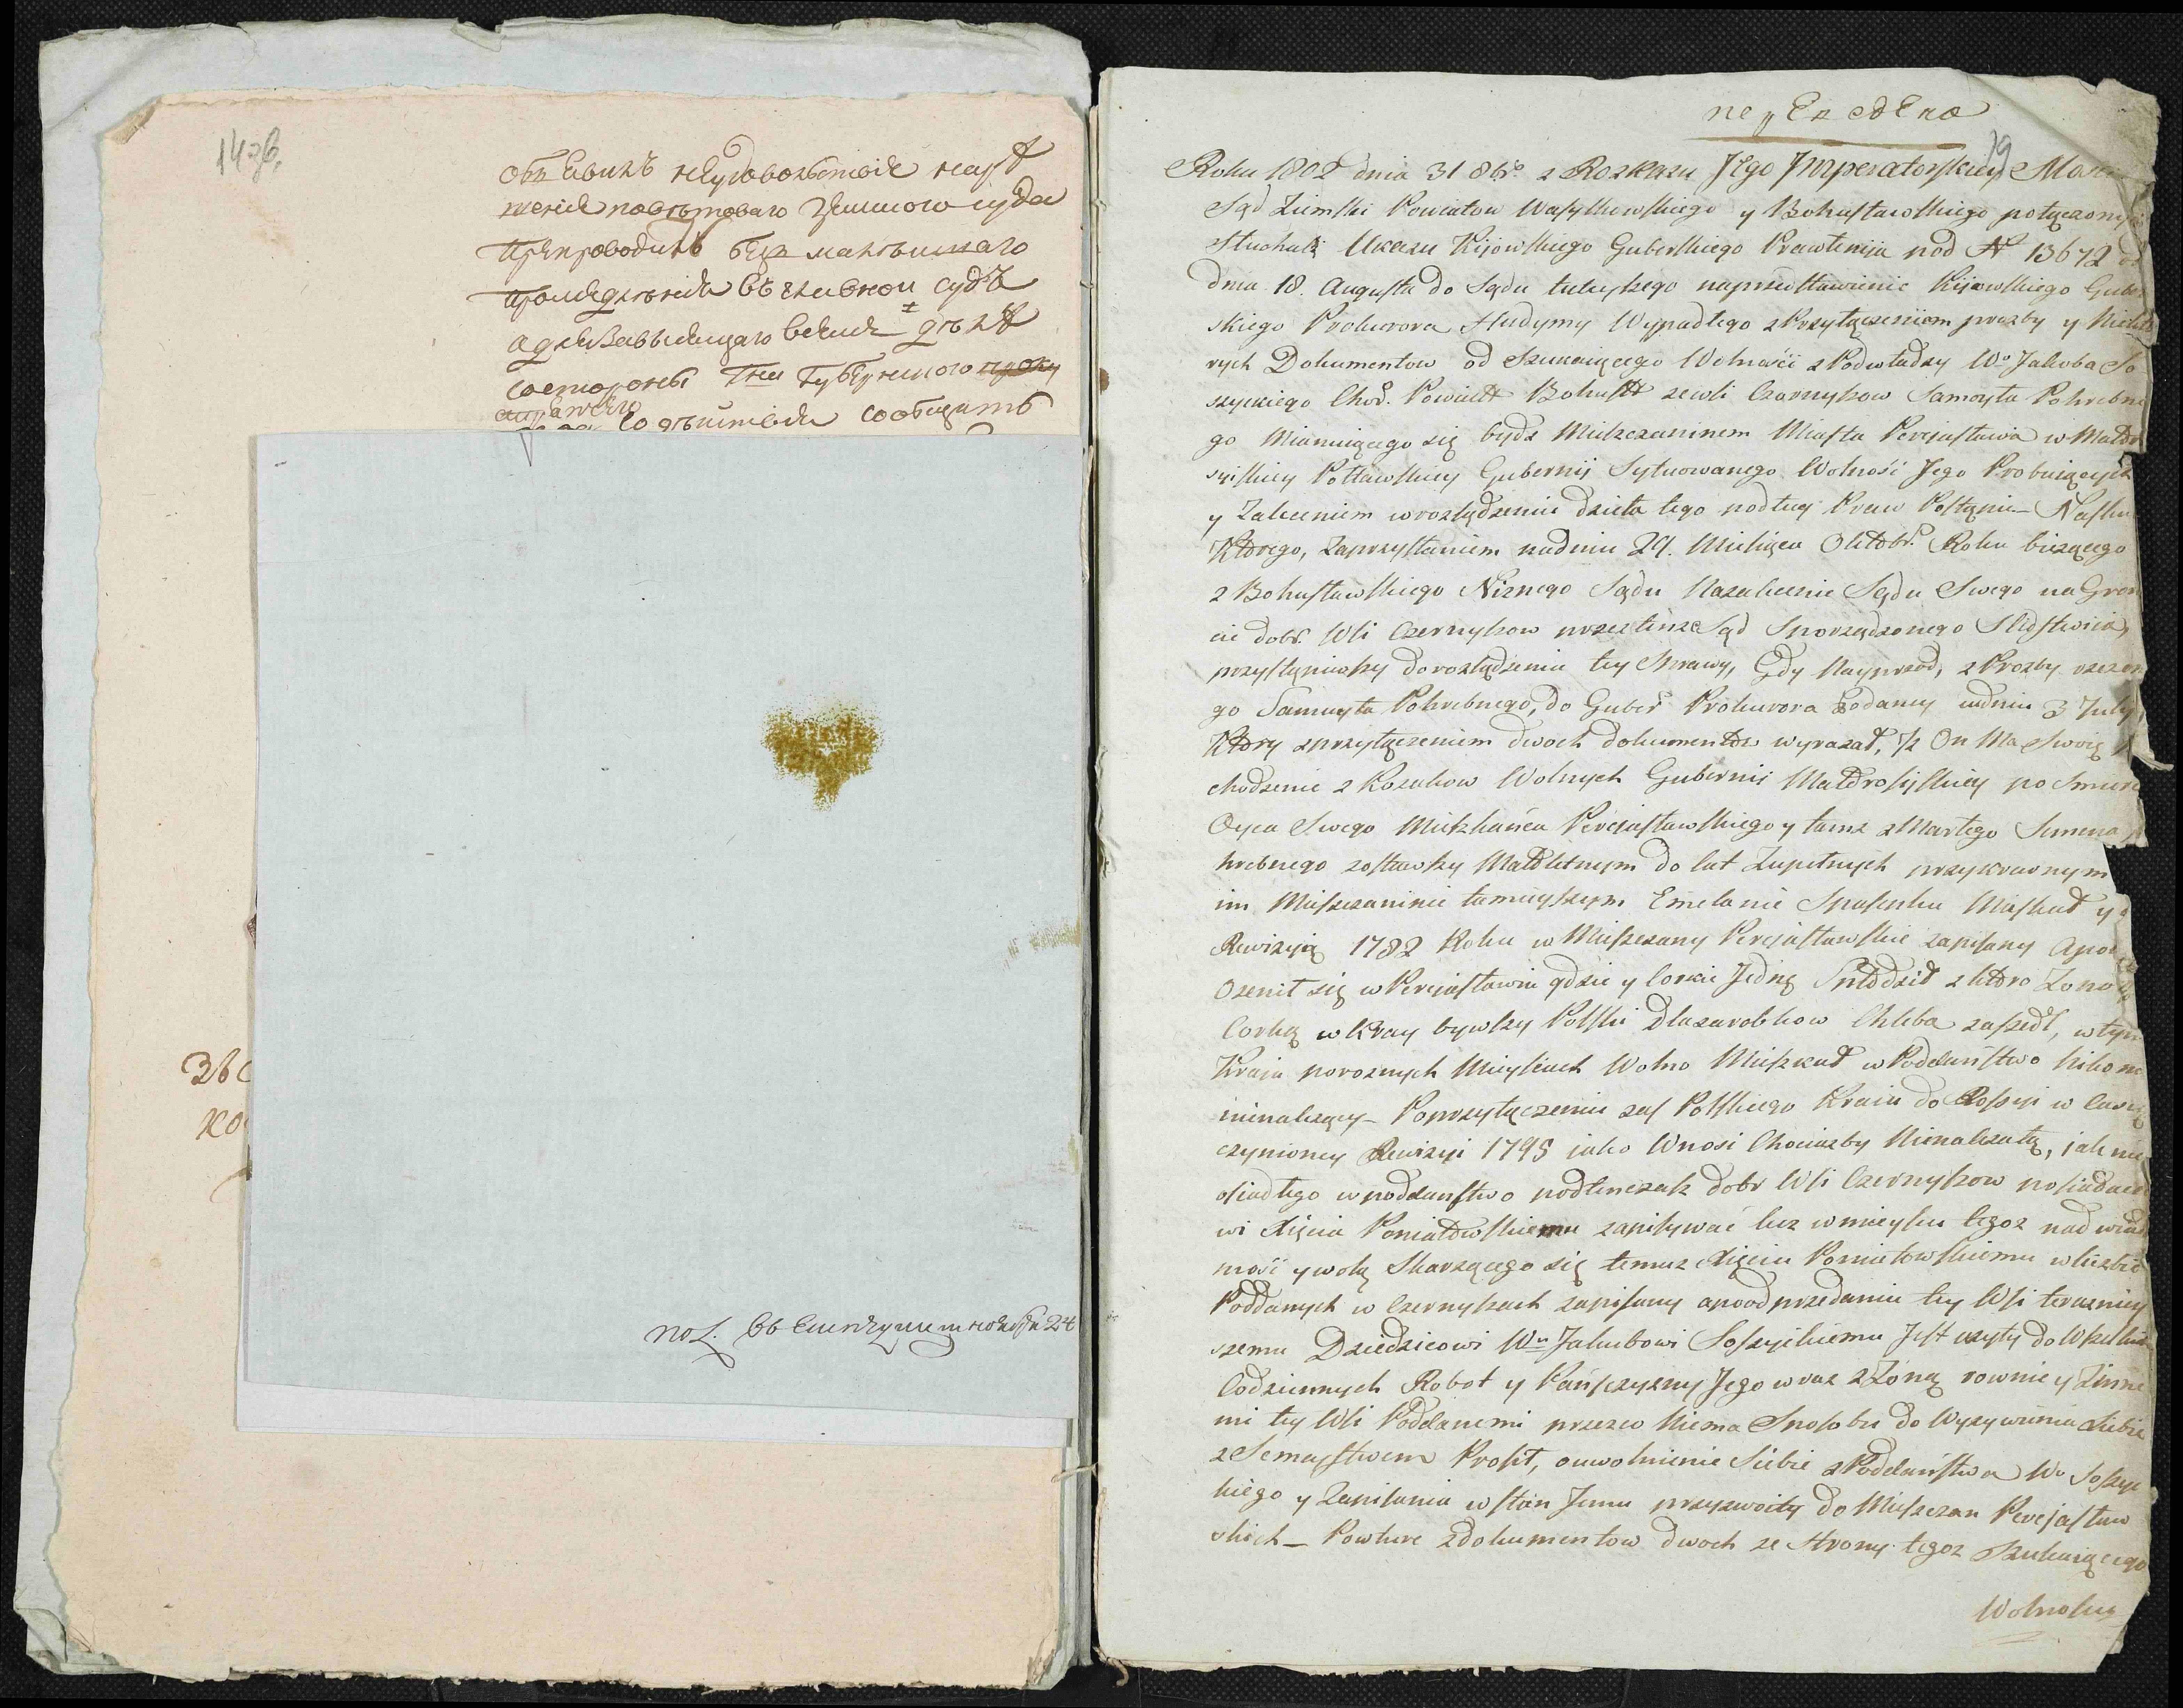 объевилъ неудовольствіе на рѣ
шеніе повѣтоваго земского суда
препроводить без малѣйшаго
промедленія въ главной судъ
состороны Гна Губернского проку
содѣйствія сообщить
пол. въ ноября 24
переведено
Roku 1802 dnia 31 8br. z Rozkazu Jego Imperatorskiey
Sąd Ziemski Powiatow Wasylkowskiego y Bohusławskiego połączony
Słuchali Ukazu Kijowskiego Guberskiego Prawlenija pod N 13672
dnia 18. Augusta do Sądu tuteyszego naprzedstawienie Kijowskiego Guber
skiego Prokurora Hudymy Wypadłego z Przyłączeniem prozby y Niektó
rych Dokumentow od Szukaiącego Wolności z Podwładzy Wo Jakoba So
szyckiego Chor. Powiatu Bohusł zewsi Czernyszow Samoyła Pohrebne
go Mianuiącego się bydz Mieszczaninem Miasta Perejasława w Małor
syiskiey Połtawskiey Gubernij Sytuowanego Wolność Jego Probuiących
y Zaleceniem w rozsądzeniu dzieła tego podług Praw Postąpić Nasku
Ktorego, zaprzystaniem nadniu 29. Miesiąca Oktobr. Roku bieżącego
z Bohusławskiego Niznego Sądu Nazalecenie Sądu Swego na Grun
cie dobr Wsi Czernyszow przeztenże Sąd Sporządzonego Slidstwia
przystąpiwszy do rozsądzenia tey Sprawy, Gdy Nayprzod, z Prozby rzeczone
go Samuyła Pohrebnego, do Guber Prokurora Podaney w dniu 3 July
Ktory z przyłączeniem dwoch dokumentow wyrazał, Iż On Ma Swoię
chodzenie z Kozakow Wolnych Gubernij Małorosyiskiey po Smier
Oyca Swego Mieszkańca Perejasławskiego y tamz zMarłego Semena
hrebnego zostawszy Małoletnym do lat Zupełnych przykrewnym
im Mieszczaninie tameyszym Emelanie Spasenku Mieszkał y
Rewizyią 1782 Roku w Mieszczany Perejasławskie zapisany Apo
Ozenił się w Perejasławiu gdzie y Corkie Jedną Spłodził z ktoro Zono
Corką w Kray bywszy Polski dla zarobkow Chleba zaszedł, w tym
Kraju poroznych Mieyscach Wolno Mieszkał w Poddaństwo Nikomu
nienalezący Poprzyłączeniu zas Polskiego Kraiu do Rossyi w Czas
czynioney Rewizyi 1795 jako Wnosi Chociazby Nienalezało, jak nie
osiadłego w poddanstwo podtenczas dobr Wsi Czernyszow posiadaczo
wi Xięcia Poniatowskiemu zapisywać lecz w mieyscu tegoz nad wiado
mość y wolą Skarzącego się temuz Xięciu Poniatowskiemu w liczbie
Poddanych w Czernyszach zapisany a po odprzedaniu tey Wsi terazniey
szemu Dziedzicowi Wu Jakubowi Soszyckiemu Jest uzyty do Wszelkich
Codziennych Robot y Pańszczyzny Jego wraz z Zoną rownie y Zinne
mi tey Wsi Poddanemi przezco Niema Sposobu do Wyzywienia Siebie
z Semeystwem Prosit, o uwolnienie Siebie z Poddaństwa Wo Soszyc
kiego y Zapisania w stan Jemu przyzwoity do Mieszczan Perejasław
skich — Powtore zdokumentow dwoch ze strony tegoz Szukaiącego
Wolności